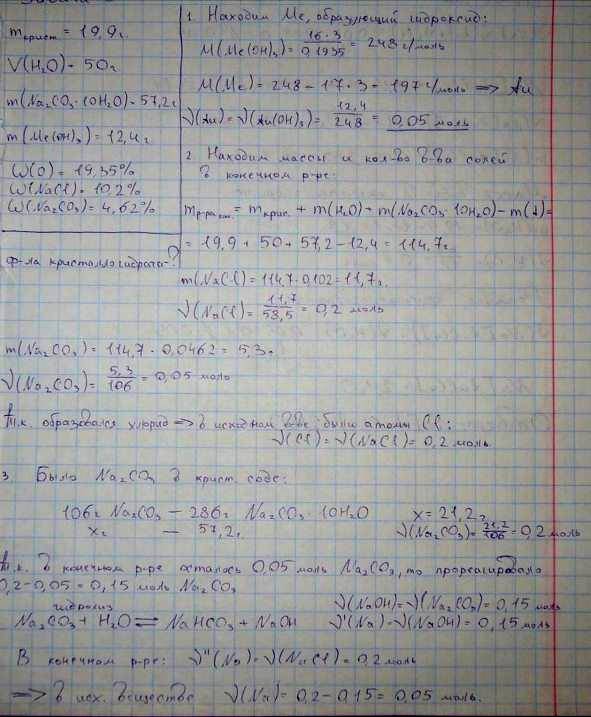 m крист = 19,9г.
V(H₂O) = 50г
m(Na₂CO₃·10H₂O) = 57,2г
m(Me(OH)₃) = 12,4г
ω(O) = 19,35%
ω(NaCl) = 10,2%
ω(Na₂CO₃) = 4,62%
Ф-ла кристаллогидрата - ?
1. Находим Me, образующий гидроксид:
M(Me(OH)₃) = 16·3 / 0,1935 = 248 г/моль
M(Me) = 248 - 17·3 = 197 г/моль => Au
ν(Au) = ν(Au(OH)₃) = 12,4 / 248 = 0,05 моль
2. Находим массы и кол-во в-ва солей
в конечном р-ре:
m р-ра кон. = m крис. + m(H₂O) + m(Na₂CO₃·10H₂O) - m(↓) =
= 19,9 + 50 + 57,2 - 12,4 = 114,7г.
m(NaCl) = 114,7·0,102 = 11,7г.
ν(NaCl) = 11,7 / 58,5 = 0,2 моль
m(Na₂CO₃) = 114,7·0,0462 = 5,3г
ν(Na₂CO₃) = 5,3 / 106 = 0,05 моль
Т.к. образовался хлорид => в исходном в-ве были атомы Cl:
ν(Cl) = ν(NaCl) = 0,2 моль.
3. Было Na₂CO₃ в крист. соде:
106г Na₂CO₃ — 286г Na₂CO₃·10H₂O x = 21,2г
xг — 57,2г ν(Na₂CO₃) = 21,2 / 106 = 0,2 моль
Т.к. в конечном р-ре осталось 0,05 моль Na₂CO₃, то прореагировало
0,2-0,05 = 0,15 моль Na₂CO₃
ν(NaOH) = ν(Na₂CO₃) = 0,15 моль
гидролиз
Na₂CO₃ + H₂O ⇌ NaHCO₃ + NaOH ν'(Na) = ν(NaOH) = 0,15 моль
В конечном р-ре: ν''(Na) = ν(NaCl) = 0,2 моль
=> в исх. веществе ν(Na) = 0,2 - 0,15 = 0,05 моль.